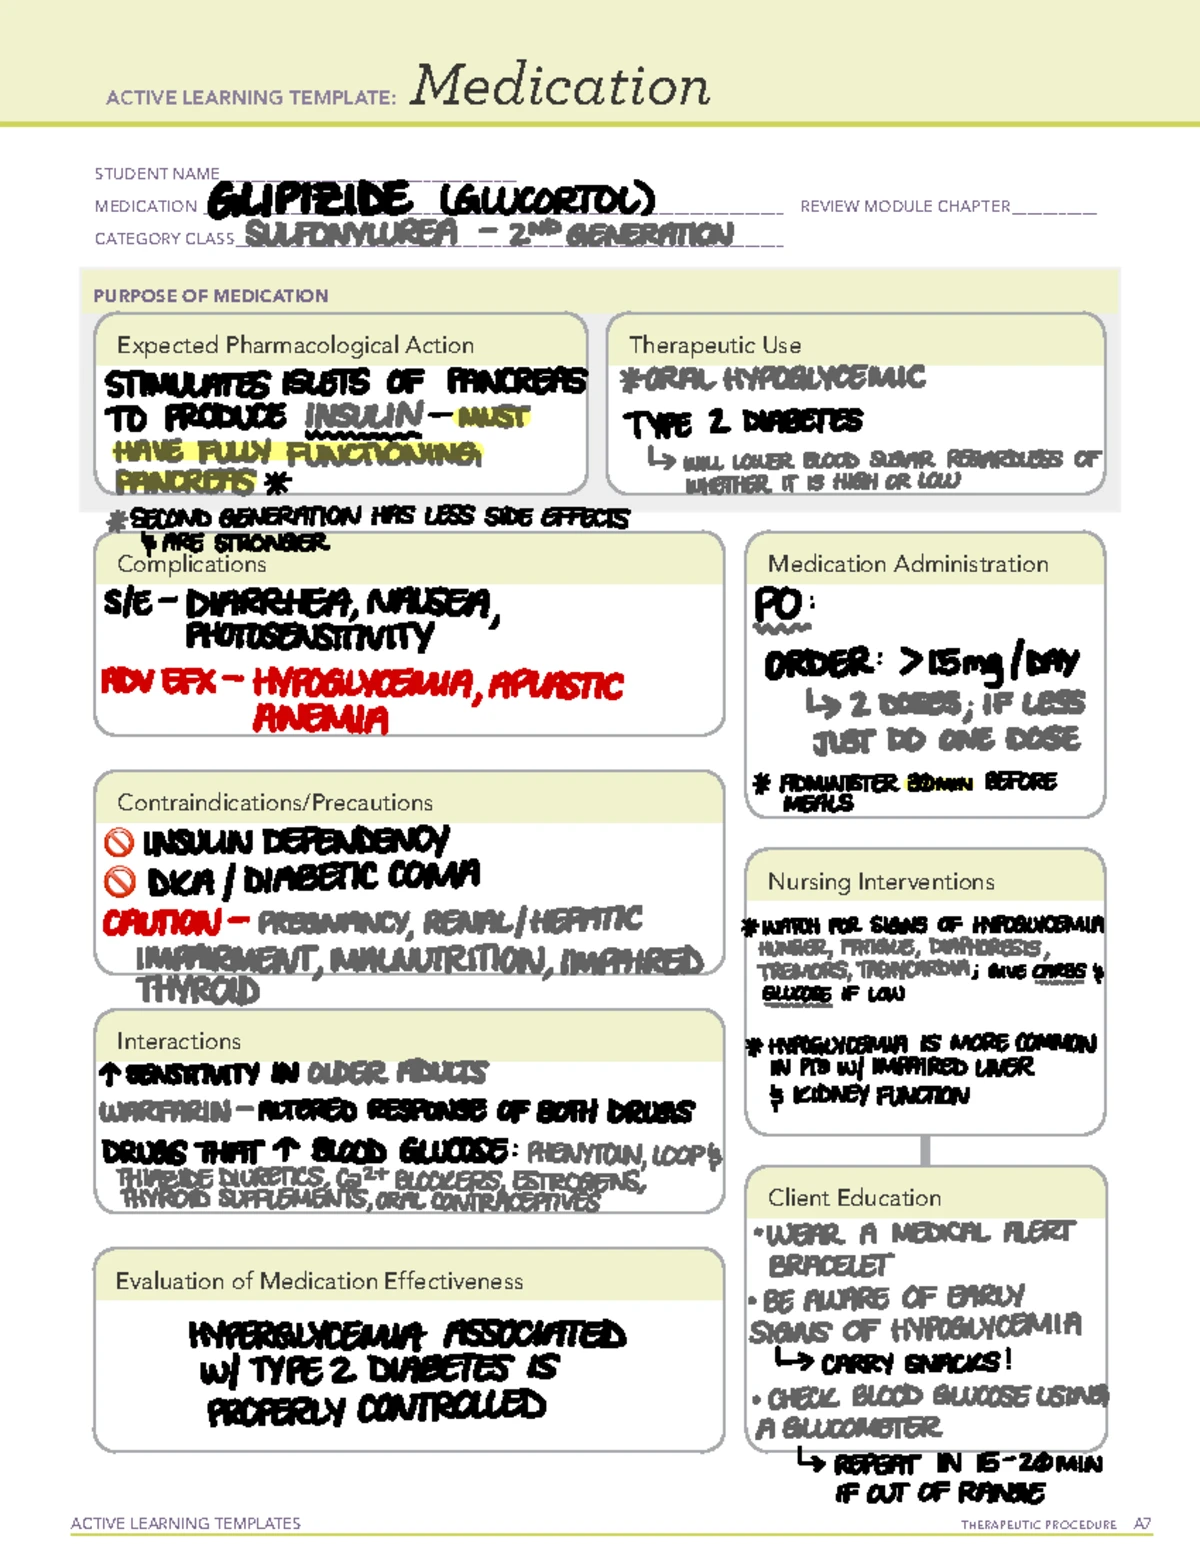 ACTIVE LEARNING TEMPLATE: Medication
STUDENT NAME
MEDICATION GLIPIZIDE (GLUCORTOL) REVIEW MODULE CHAPTER
CATEGORY CLASS SULFONYLUREA - 2ND GENERATION
PURPOSE OF MEDICATION
Expected Pharmacological Action
STIMULATES ISLETS OF PANCREAS
TO PRODUCE INSULIN - MUST
HAVE FULLY FUNCTIONING
PANCREAS *
* SECOND GENERATION HAS LESS SIDE EFFECTS
& ARE STRONGER
Therapeutic Use
* ORAL HYPOGLYCEMIC
TYPE 2 DIABETES
↳ WILL LOWER BLOOD SUGAR REGARDLESS OF
WHETHER IT IS HIGH OR LOW
Complications
S/E - DIARRHEA, NAUSEA,
PHOTOSENSITIVITY
ADV EFX - HYPOGLYCEMIA, APLASTIC
ANEMIA
Medication Administration
PO:
ORDER: >15mg/DAY
↳ 2 DOSES; IF LESS
JUST DO ONE DOSE
* ADMINISTER 30MIN BEFORE
MEALS
Contraindications/Precautions
🚫 INSULIN DEPENDENCY
🚫 DKA / DIABETIC COMA
CAUTION - PREGNANCY, RENAL/HEPATIC
IMPAIRMENT, MALNUTRITION, IMPAIRED
THYROID
Nursing Interventions
* WATCH FOR SIGNS OF HYPOGLYCEMIA
HUNGER, FATIGUE, DIAPHORESIS,
TREMORS, TACHYCARDIA; GIVE CARBS &
GLUCOSE IF LOW
* HYPOGLYCEMIA IS MORE COMMON
IN PTS W/ IMPAIRED LIVER
& KIDNEY FUNCTION
Interactions
↑ SENSITIVITY IN OLDER ADULTS
WARFARIN - ALTERED RESPONSE OF BOTH DRUGS
DRUGS THAT ↑ BLOOD GLUCOSE: PHENYTOIN, LOOP &
THIAZIDE DIURETICS, Ca2+ BLOCKERS, ESTROGENS,
THYROID SUPPLEMENTS, ORAL CONTRACEPTIVES
Client Education
• WEAR A MEDICAL ALERT
BRACELET
• BE AWARE OF EARLY
SIGNS OF HYPOGLYCEMIA
↳ CARRY SNACKS!
• CHECK BLOOD GLUCOSE USING
A GLUCOMETER
↳ REPEAT IN 15-20MIN
IF OUT OF RANGE
Evaluation of Medication Effectiveness
HYPERGLYCEMIA ASSOCIATED
W/ TYPE 2 DIABETES IS
PROPERLY CONTROLLED
ACTIVE LEARNING TEMPLATES
THERAPEUTIC PROCEDURE A7